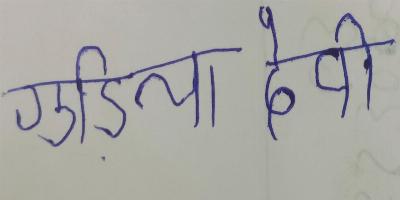 गुड़िया देवी